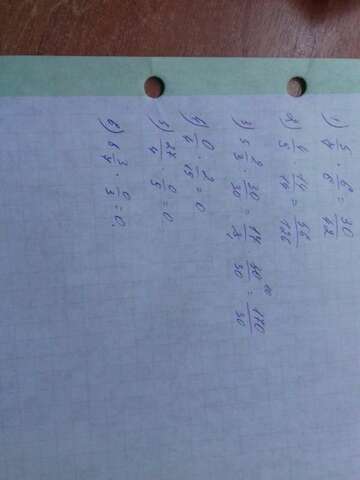 1) 5/7 · 6/6 = 30/42
2) 4/9 · 14/14 = 56/126
3) 5 2/3 · 30/30 = 17/3 · 30/30 10 = 170/30
4) 0/7 · 2/15 = 0
5) 27/4 · 0/5 = 0
6) 6 3/4 · 0/3 = 0.